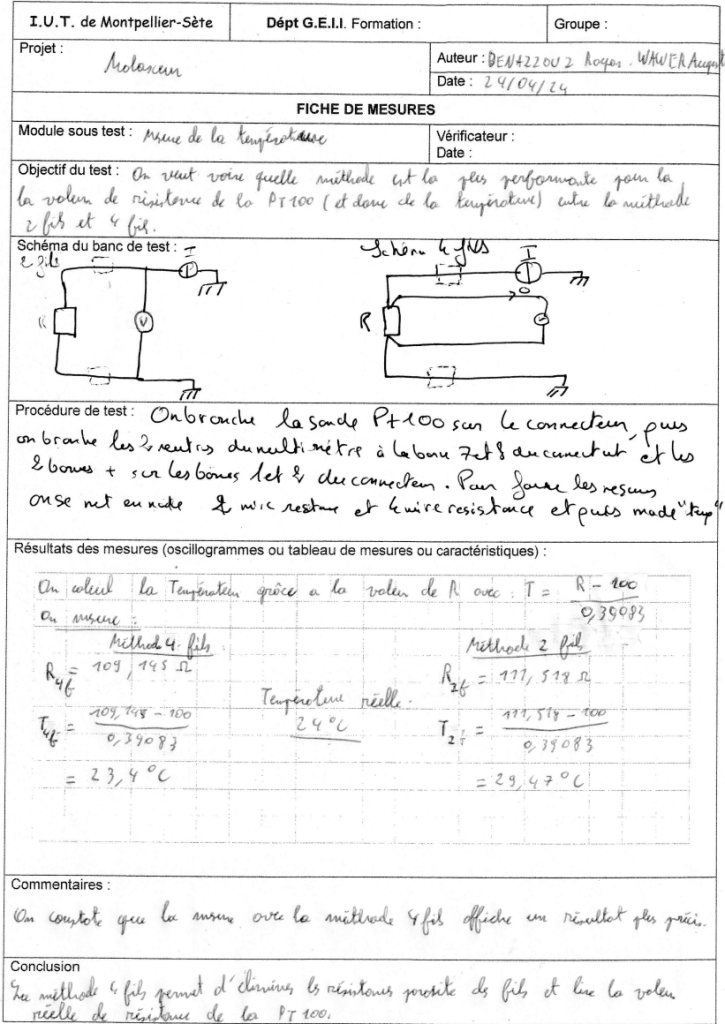 I.U.T. de Montpellier-Sète
Dépt G.E.I.I. Formation :
Groupe :
Projet :
Auteur : BENAZZOUZ WAWER
Date : 24/04/24
FICHE DE MESURES
Module sous test : mesure de la température
Vérificateur :
Date :
Objectif du test : On veut voire quelle méthode est la plus performante pour la
la valeur de résistance de la PT100 (et donc de la température) entre la méthode
2 fils et 4 fils.
Schéma du banc de test :
2 fils
I
R
V
Schéma 4 fils
I
0
R
Procédure de test : On branche la sonde Pt100 sur le connecteur, puis
on branche les 2 du multimètre à la borne 7 et 8 du et les
2 bornes + sur les bornes 1 et 2 du connecteur. Pour faire les
on se met en mode 2 wire et 4 wire resistance et puis mode "temp"
Résultats des mesures (oscillogrammes ou tableau de mesures ou caractéristiques) :
On calcul la grâce a la valeur de R avec : T = R - 100
0,39083
On mesure :
Méthode 4 fils
Méthode 2 fils
R4f = 109,145 Ω
R2f = 111,518 Ω
Température réelle.
24°C
T4f = 109,145 - 100
0,39083
T2f = 111,518 - 100
0,39083
= 23,4 °C
= 29,47°C
Commentaires :
On constate que la mesure avec la méthode 4 fils affiche un résultat plus précis.
Conclusion
La méthode 4 fils permet d'éliminer les résistances parasite des fils et lire la valeur
réelle de résistance de la PT 100.